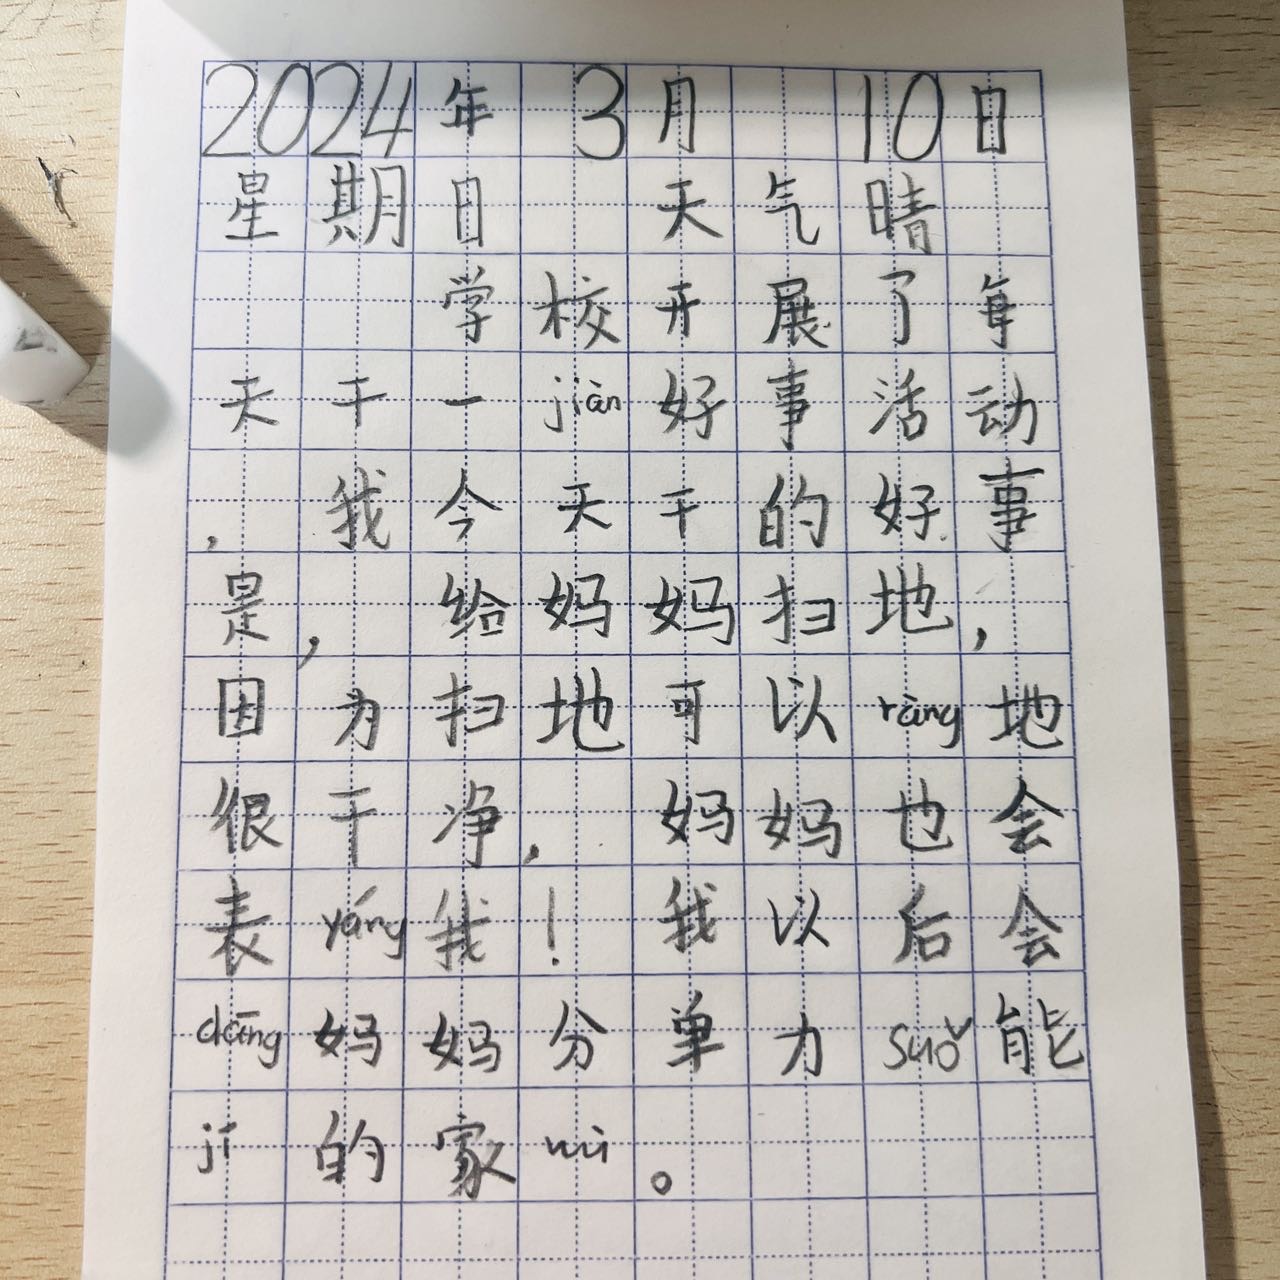 2024年 3月 10日
星期日 天气晴
学校开展了每
天干一jiàn好事活动
，我今天干的好事
是，给妈妈扫地，
因为扫地可以ràng地
很干净，妈妈也会
表yáng我！我以后会
dāng妈妈分单力suǒ能
jí的家wù。